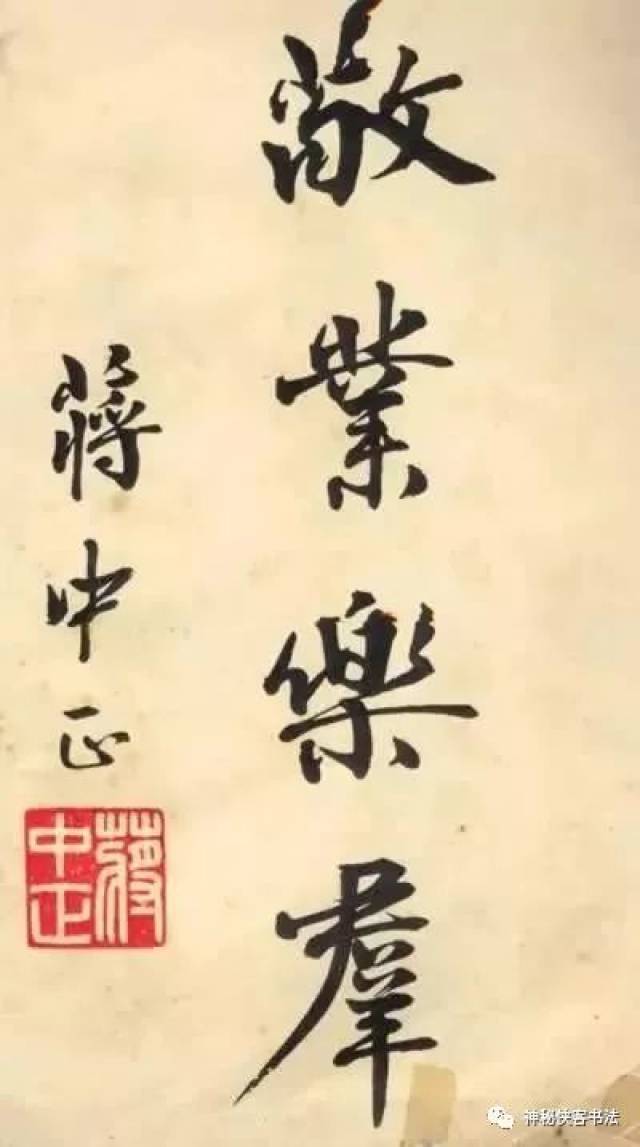 敬業樂羣
蔣中正
蔣中正
神秘侠客书法